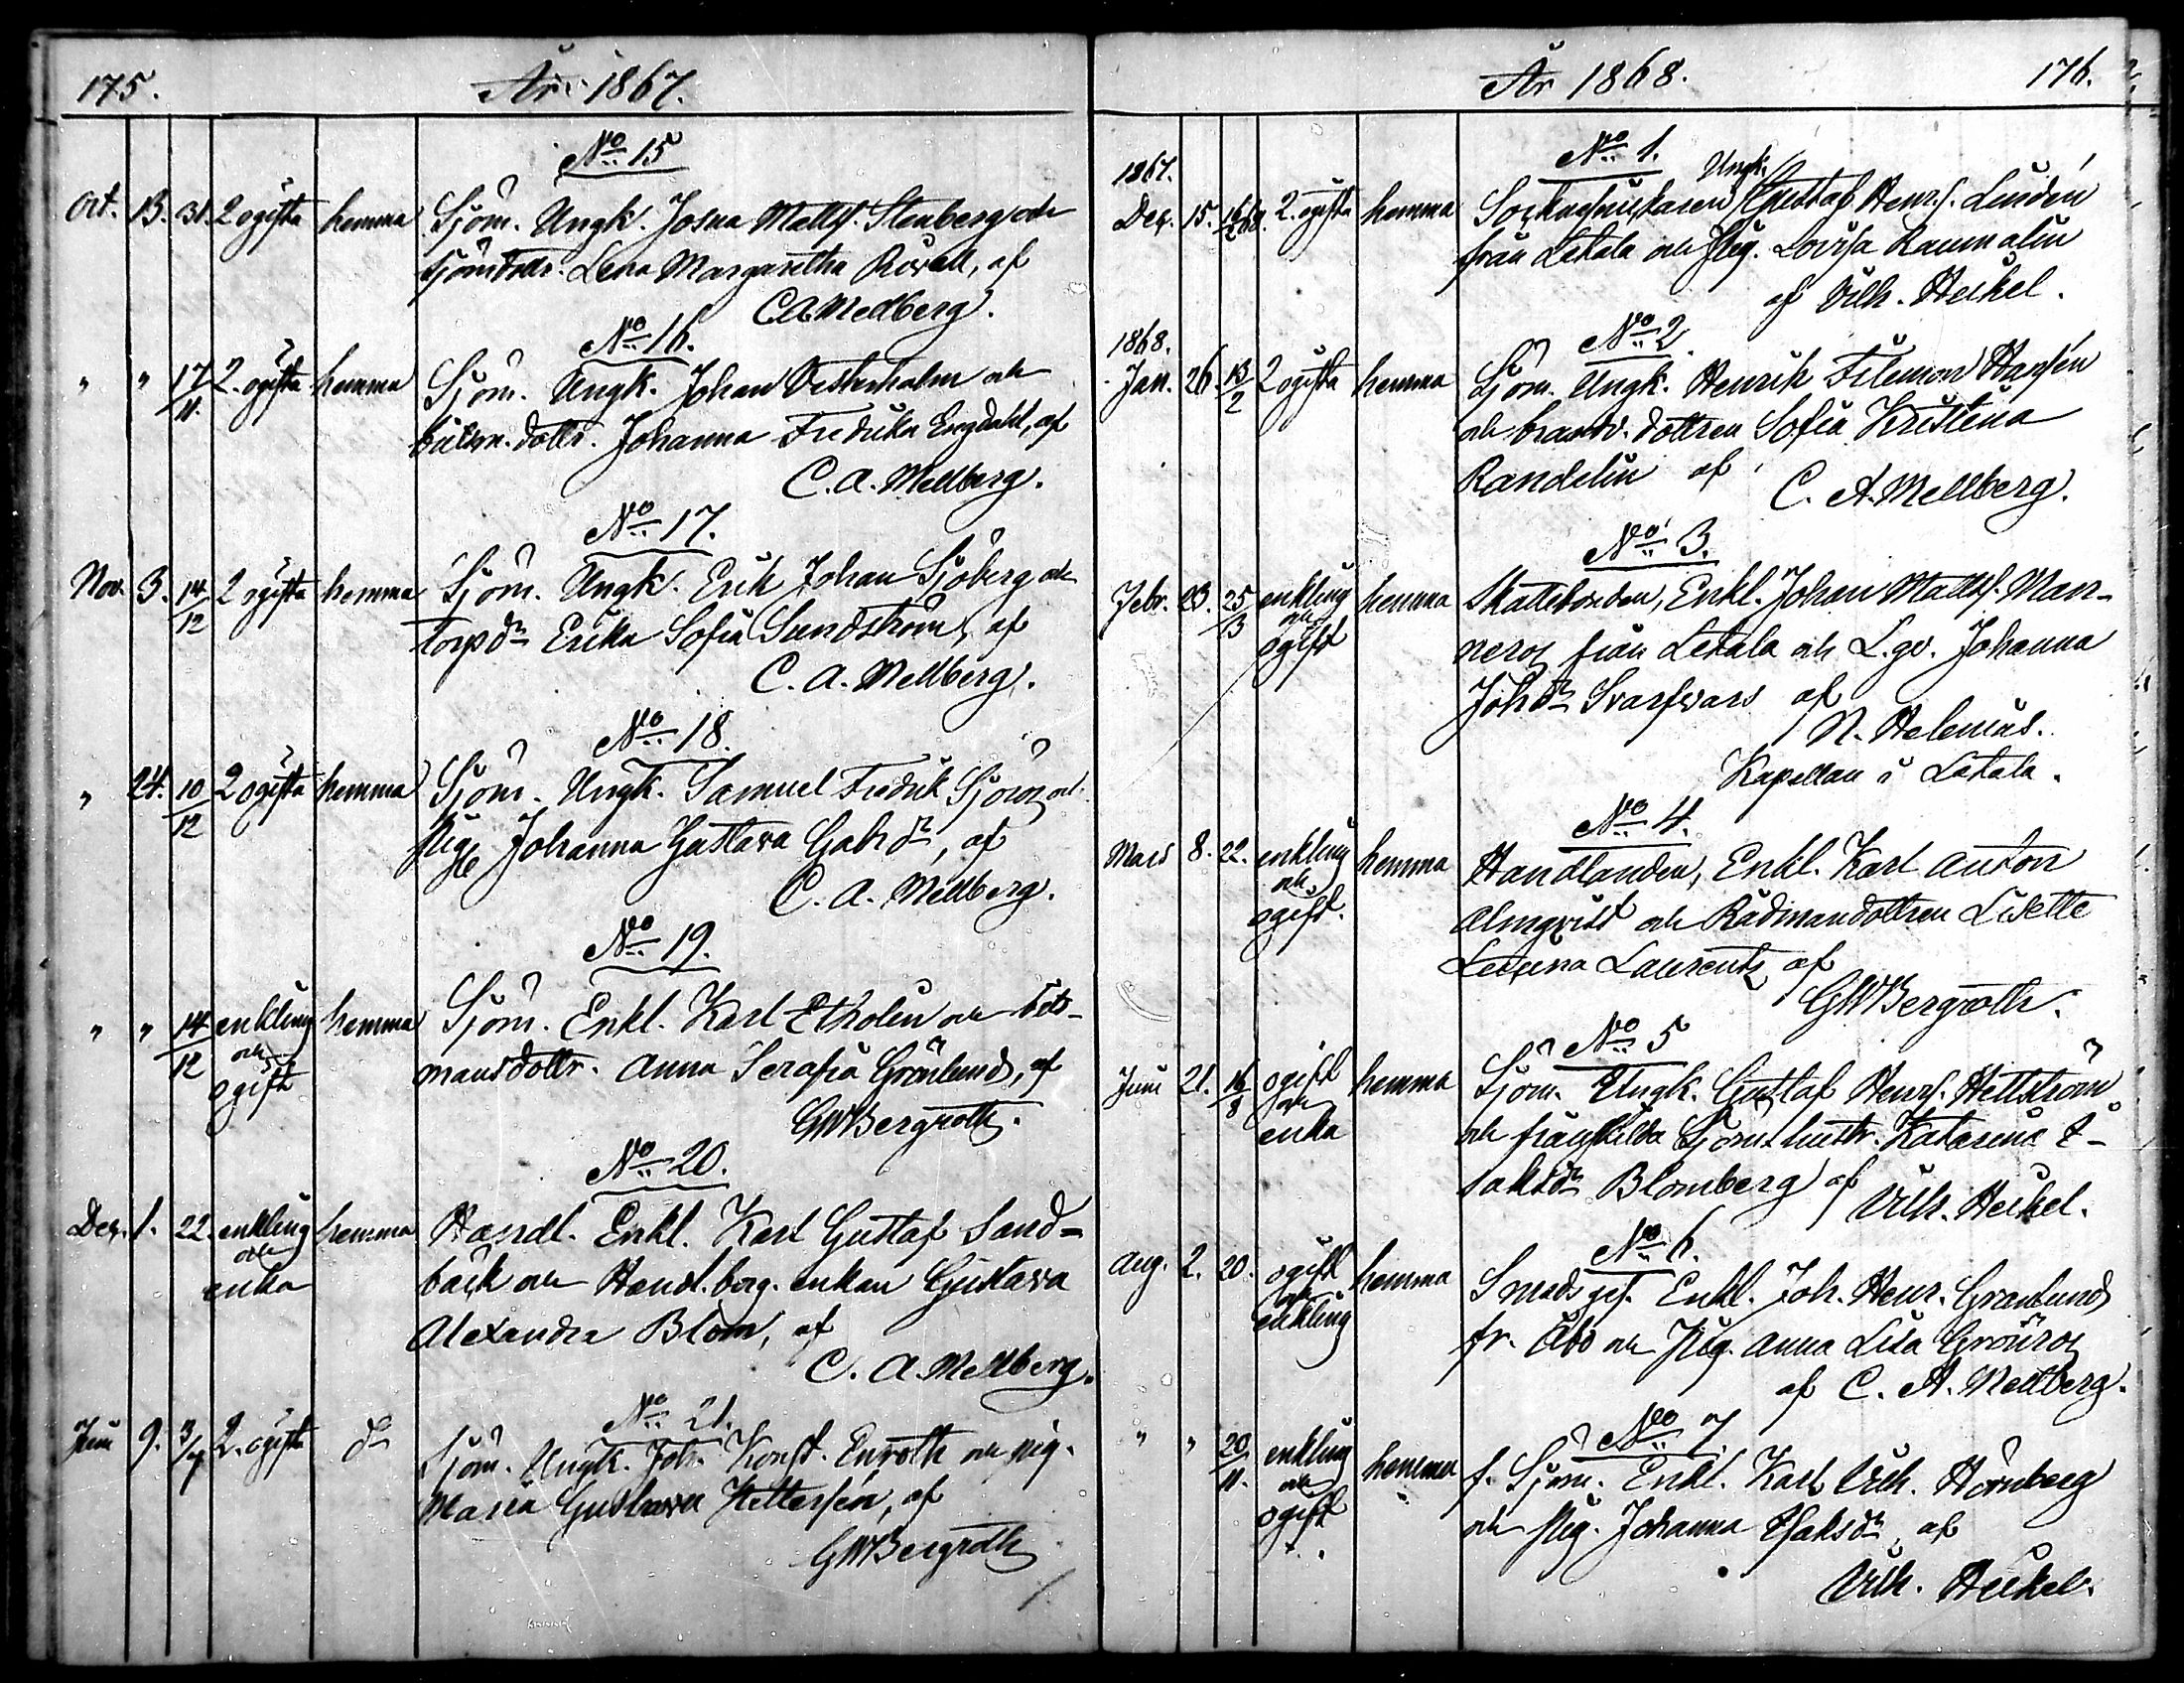 175.
År 1867.
No 15
Oct. 13. 31. 2 ogifta hemma Sjöm. Ungk. Josua Matts. Stenberg och
sjömdottr. Lena Margaretha Roxell, af
C A Mellberg.
No 16.
" " 17/11. 2. ogifta hemma Sjöm. Ungk. Johan Vesterholm och
båtsm. dottr. Johanna Fredrika Engdahl, af
C. A. Mellberg.
No 17.
Nov. 3. 14/12 2 ogifta hemma Sjöm. Ungk. Erik Johan Sjöberg och
torpdr Erika Sofia Sundström, af
C. A. Mellberg.
No 18.
" 24. 10/12 2 ogifta hemma Sjöm. Ungk. Samuel Fredrik Sjöroos och
Johanna Gustava Gabrdr, af
C. A. Mellberg.
No 19.
" " 14/12 enkling och ogift hemma Sjöm. Enkl. Karl Etholén och båts-
mansdottr. Anna Serafia Grönlund, af
GWBergroth.
No 20.
Dec. 1. 22. enkling och enka hemma Handl. Enkl. Karl Gustaf Sand-
bäck och Handl.borg. enkan Gustava
Alexandra Blom, af
C. A. Mellberg.
No 21.
Juni 9. 3/7 2. ogifta do Sjöm. Ungk. Joh. Konst. Enroth och pig.
Maria Gustava Hellersén, af
GWBergroth
År 1868.
176.
No 1.
1867.
Ungk.
Dec. 15. 16/2 68. 2. ogifta hemma Sockneskräddaren Gustaf Henrs. Lindén
från Letala och Pig. Lovisa Raumolin
af Vilh. Heikel.
No 2.
1868.
Jan. 26. 13/2 2 ogifta hemma Sjöm. Ungk. Henrik Filemon Hansén
och brandv. dottren Sofia Kristina
Randelin af
C. A. Mellberg.
No 3.
Febr. 23. 25/3 enkling och ogift hemma Skattebonden, Enkl. Johan Matths. Man-
neroos från Letala och L.gv. Johanna
Johdr Svarfvars af
N. Helenius.
Kapellan i Letala.
No 4.
Mars 8. 22. enkling och ogift. hemma Handlanden, Enkl. Karl Anton
Almqvist och Rådmandottren Lisette
Laurentz af
GWBergroth.
No 5
Juni 21. 16/8 ogift och enka hemma Sjöm. Ungk. Gustaf Henrs. Hellström
och frånskilda Sjöm.hustr. Katarina I-
saksdr Blomberg af
Vilh. Heikel.
No 6.
Aug. 2. 20. ogift och enkling hemma Smedsges. Enkl. Joh. Henr. Granlund
fr. Åbo och Pig. Anna Lisa Grönroos
af C. A. Mellberg.
No 7.
" " 20/11. enkling och ogift hemma f. Sjöm. Enkl. Karl Vilh. Hörnberg
och Pig. Johanna Isaksdr, af
Vilh. Heikel.